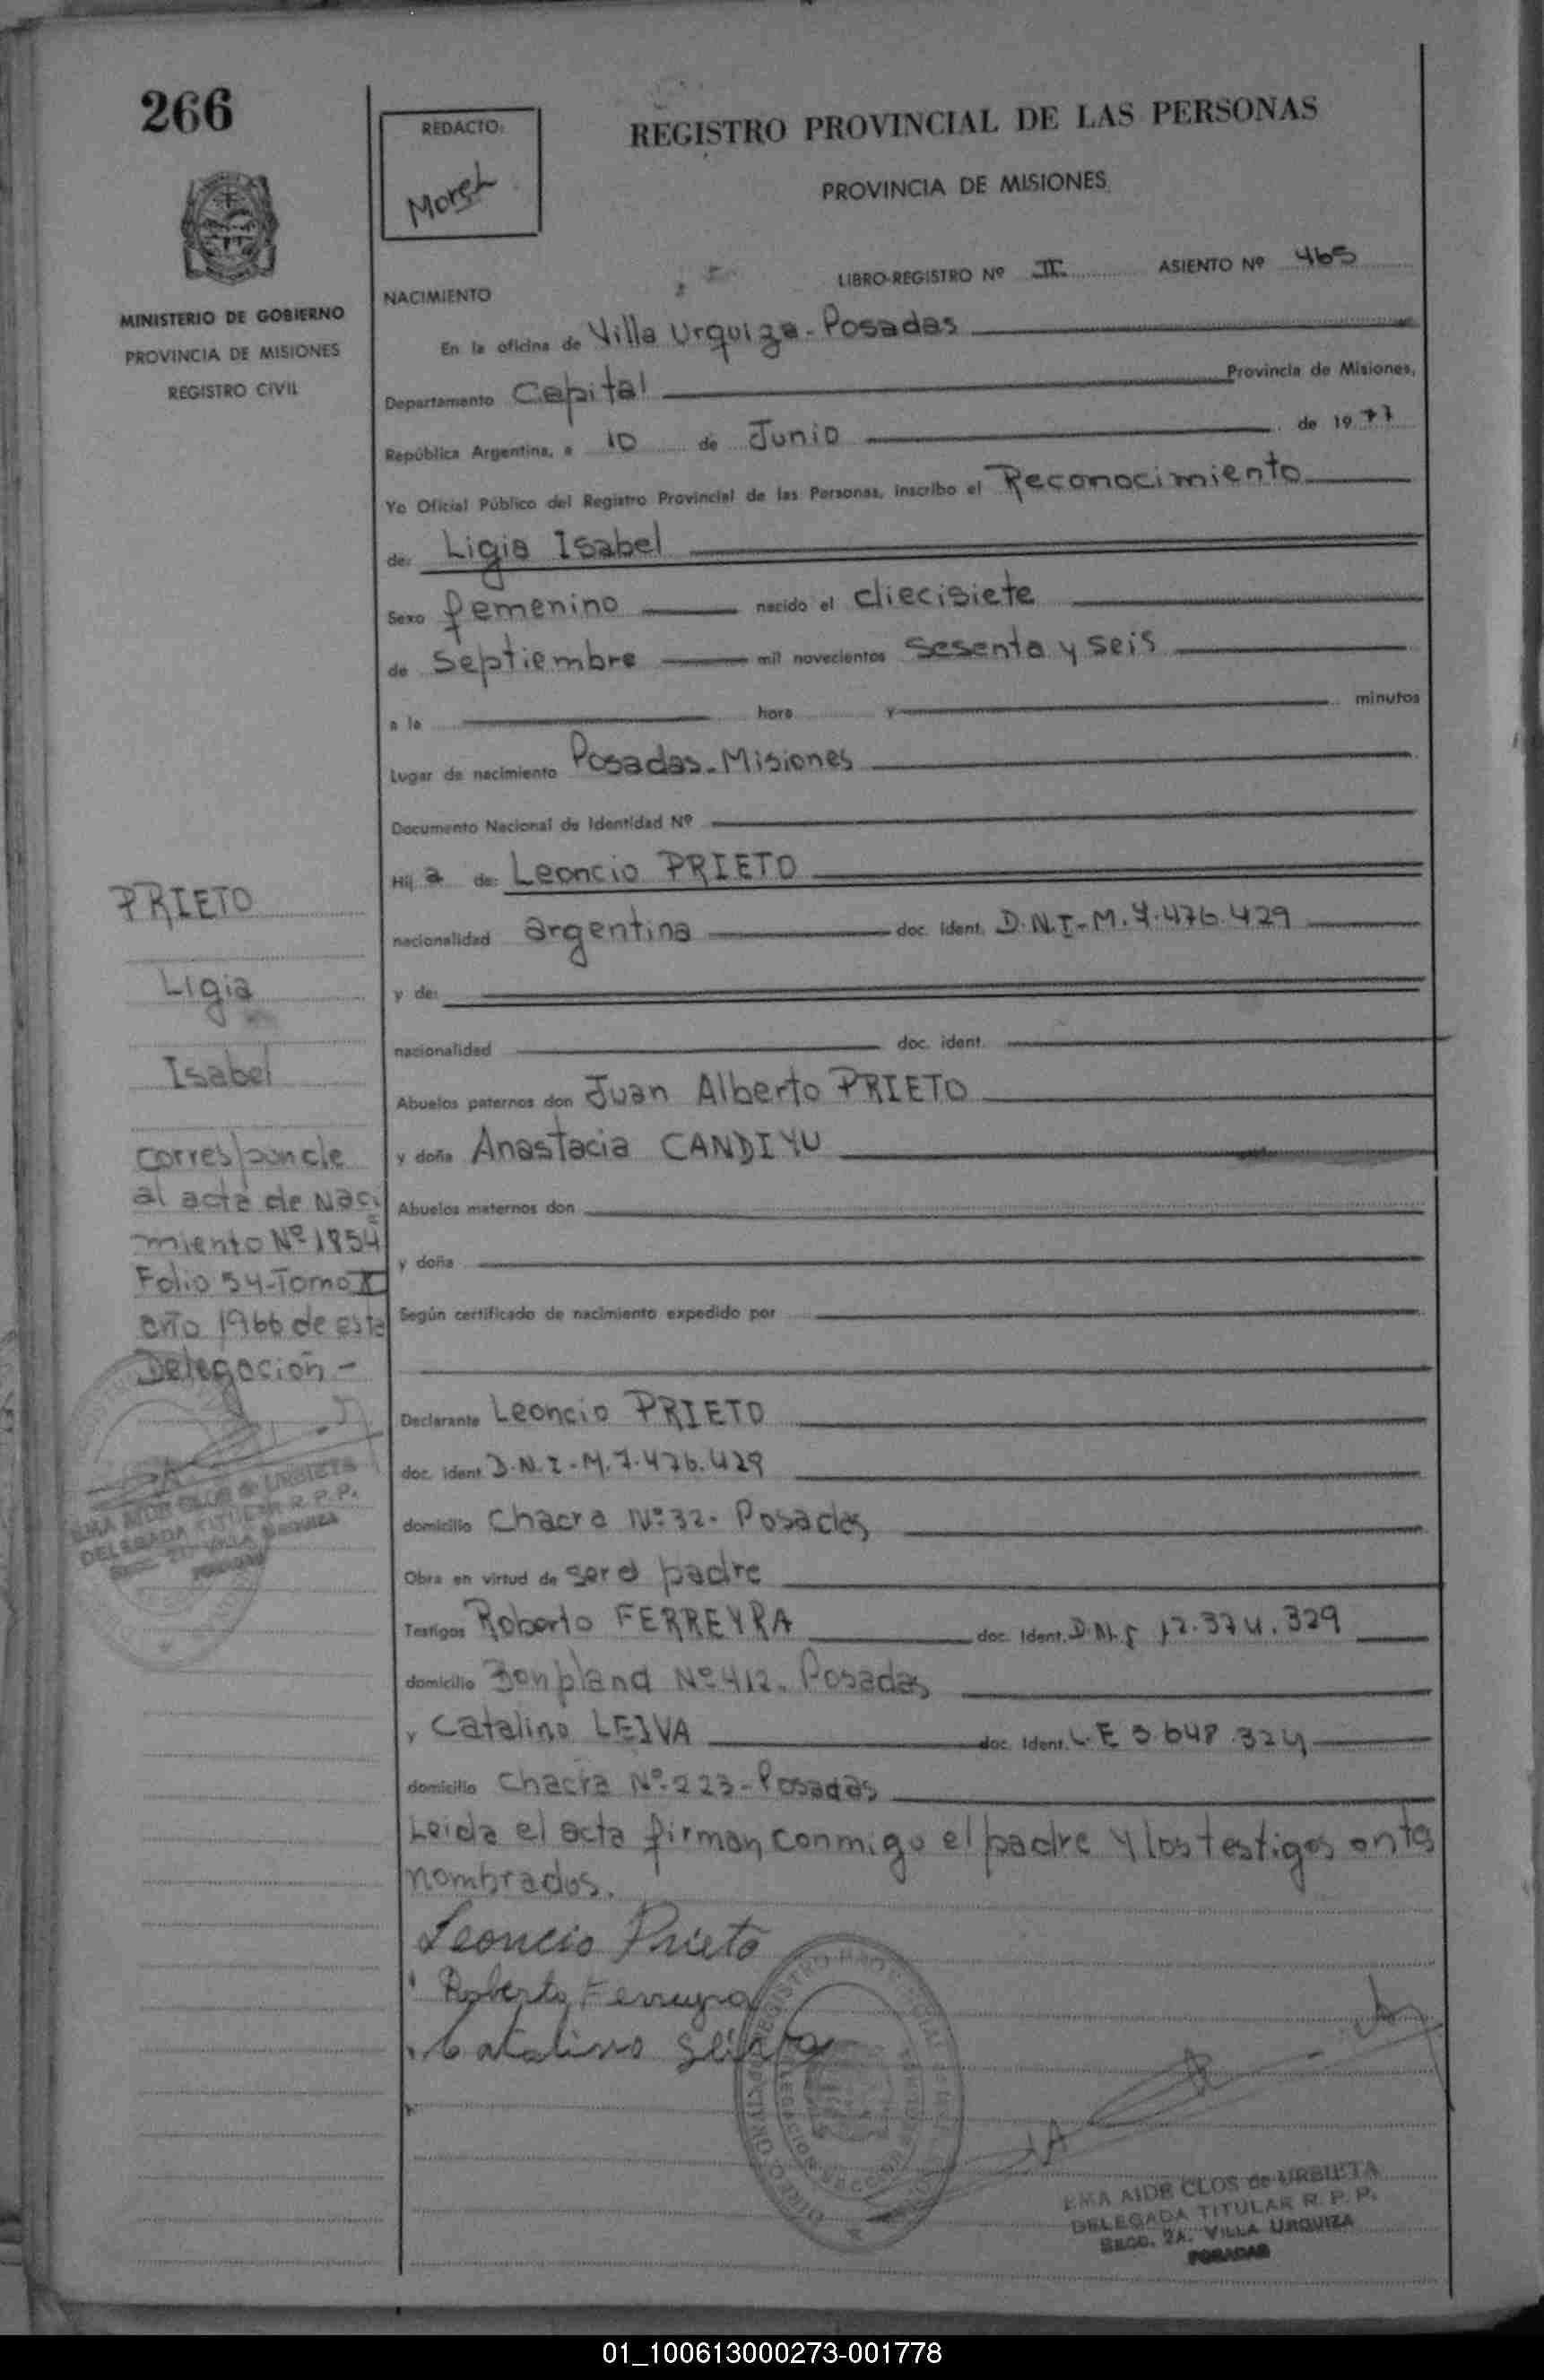 266
REDACTO:
Morel
REGISTRO PROVINCIAL DE LAS PERSONAS
PROVINCIA DE MISIONES
MINISTERIO DE GOBIERNO
PROVINCIA DE MISIONES
REGISTRO CIVIL
LIBRO-REGISTRO Nº II ASIENTO Nº 465
NACIMIENTO
En la oficina de Villa Urquiza - Posadas
Departamento Capital Provincia de Misiones,
República Argentina, a 10 de Junio de 1977
Yo Oficial Público del Registro Provincial de las Personas, inscribo el Reconocimiento
de: Ligia Isabel
Sexo femenino nacido el diecisiete
de Septiembre mil novecientos Sesenta y seis
a la hora y minutos
Lugar de nacimiento Posadas - Misiones
Documento Nacional de Identidad Nº
Hij a de: Leoncio PRIETO
nacionalidad argentina doc. ident. D.N.I - M. 7.476.429
y de:
nacionalidad doc. ident.
Abuelos paternos don Juan Alberto PRIETO
y doña Anastacia CANDIYU
Abuelos maternos don
y doña
Según certificado de nacimiento expedido por
Declarante Leoncio PRIETO
doc. ident D.N.I - M. 7.476.429
domicilio Chacra Nº 32 - Posadas
Obra en virtud de ser el padre
Testigos Roberto FERREYRA doc. Ident. D.N.I 12.374.329
domicilio Bonpland Nº 412. Posadas
y Catalino LEIVA doc. Ident. L.E 5.648.324
domicilio Chacra Nº 223 - Posadas
Leida el acta firman conmigo el padre y los testigos antes
nombrados.
Leoncio Prieto
Roberto Ferreyra
Catalino Leiva
EMA AIDE CLOS de URBIETA
DELEGADA TITULAR R. P. P.
SECC. 2A. VILLA URQUIZA
POSADAS
PRIETO
Ligia
Isabel
Corresponde
al acta de Naci
miento Nº 1854
Folio 54 - Tomo II
año 1966 de esta
Delegación -
EMA AIDE CLOS de URBIETA
DELEGADA TITULAR R. P. P.
SECC. 2A. VILLA URQUIZA
POSADAS
01_100613000273-001778